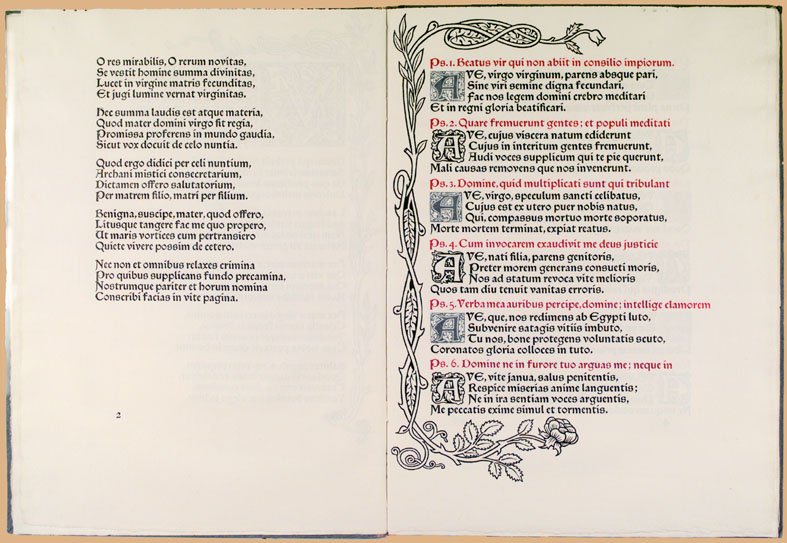 O res mirabilis, O rerum novitas,
Se vestit homine summa divinitas,
Lucet in virgine matris fecunditas,
Et jugi lumine vernat virginitas.
Hec summa laudis est atque materia,
Quod mater domini virgo sit regia,
Promissa proferens in mundo gaudia,
Sicut vox docuit de celo nuntia.
Quod ergo didici per celi nuntium,
Archani mistici consecretarium,
Dictamen offero salutatorium,
Per matrem filio, matri per filium.
Benigna, suscipe, mater, quod offero,
Litusque tangere fac me quo propero,
Ut maris vortices cum pertransiero
Quiete vivere possim de cetero.
Nec non et omnibus relaxes crimina
Pro quibus supplicans fundo precamina,
Nostrumque pariter et horum nomina
Conscribi facias in vite pagina.
2
Ps. 1. Beatus vir qui non abiit in consilio impiorum.
AVE, virgo virginum, parens absque pari,
Sine viri semine digna fecundari,
Fac nos legem domini crebro meditari
Et in regni gloria beatificari.
Ps. 2. Quare fremuerunt gentes: et populi meditati
AVE, cujus viscera natum ediderunt
Cujus in interitum gentes fremuerunt,
Audi voces supplicum qui te pie querunt,
Mali causas removens que nos invenerunt.
Ps. 3. Domine, quid multiplicati sunt qui tribulant
AVE, virgo, speculum sancti celibatus,
Cujus est ex utero puer nobis natus,
Qui, compassus mortuo morte soporatus,
Morte mortem terminat, expiat reatus.
Ps. 4. Cum invocarem exaudivit me deus justicie
AVE, nati filia, parens genitoris,
Preter morem generans consueti moris,
Nos ad statum revoca vite melioris
Quos tam diu tenuit vanitas erroris.
Ps. 5. Verba mea auribus percipe, domine: intellige clamorem
AVE, que, nos redimens ab Egypti luto,
Subvenire satagis vitiis imbuto,
Tu nos, bone protegens voluntatis scuto,
Coronatos gloria colloces in tuto.
Ps. 6. Domine ne in furore tuo arguas me: neque in
AVE, vite janua, salus penitentis,
Respice miserias anime languentis;
Ne in ira sentiam voces arguentis,
Me peccatis exime simul et tormentis.